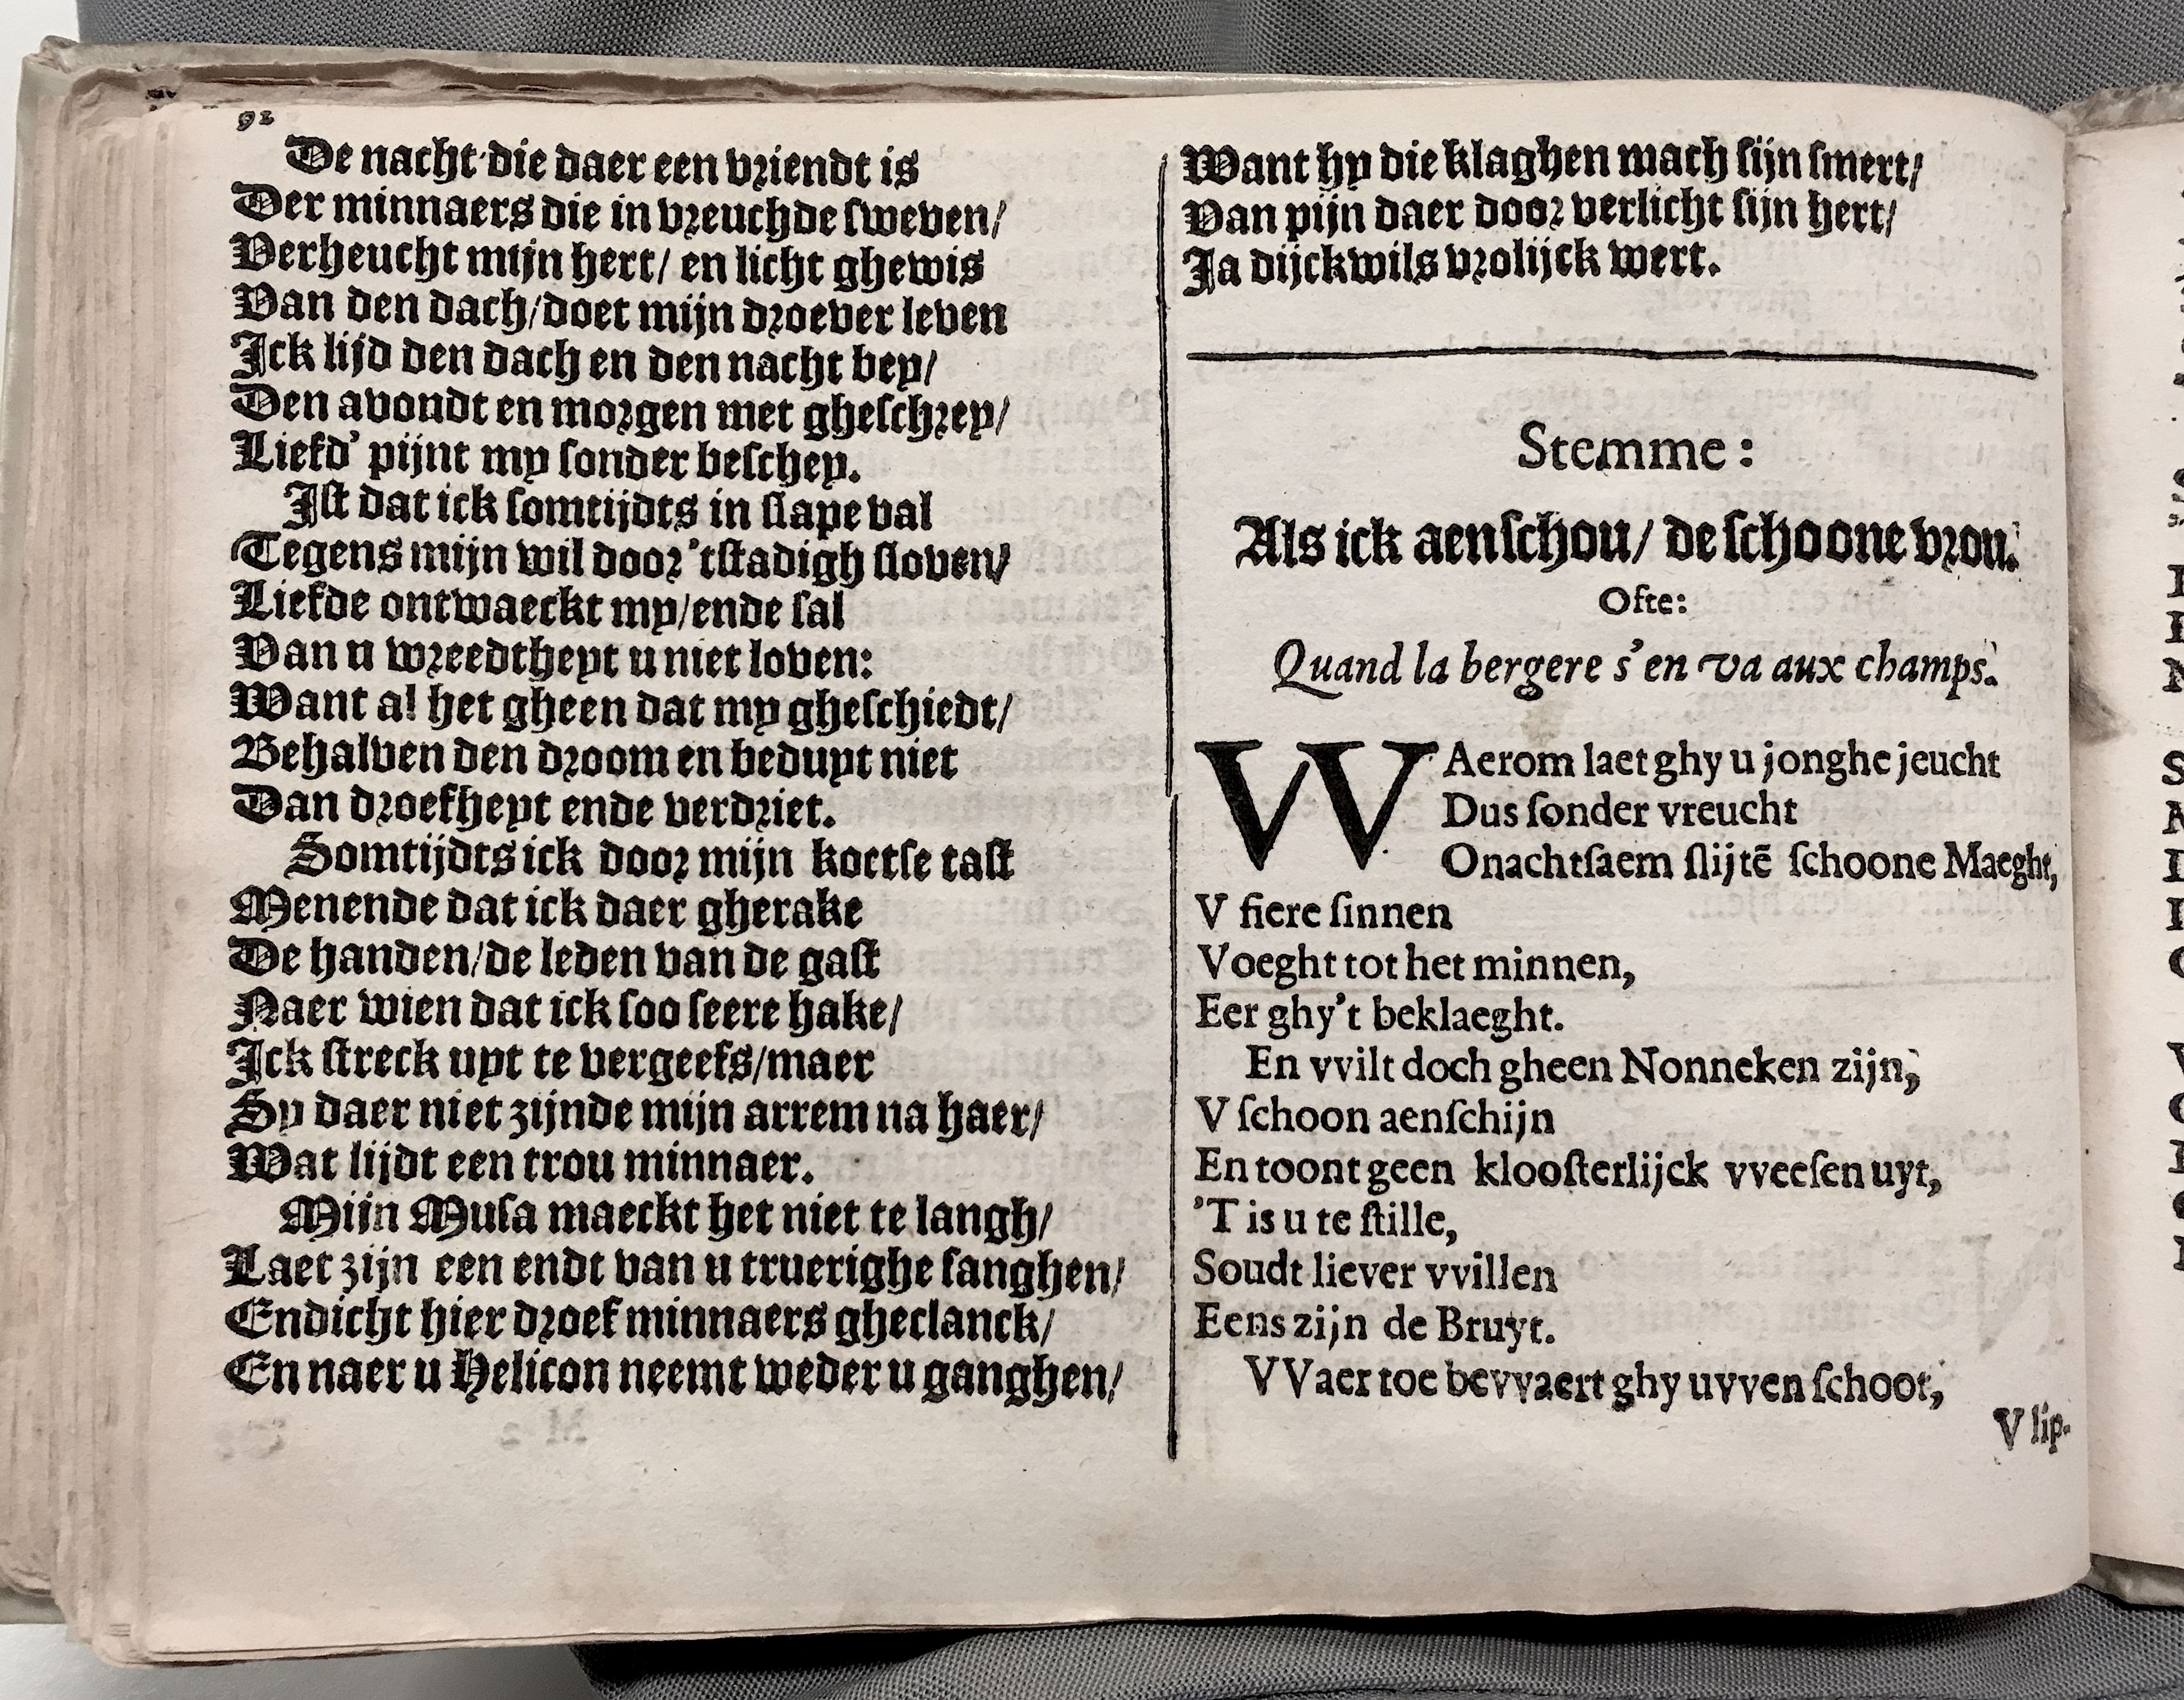 92
De nacht die daer een vriendt is
Der minnaers die in vreuchde ſweven/
Verheucht mijn hert/ en licht ghewis
Van den dach/doet mijn droever leven
Ick lijd den dach en den nacht bey/
Den avondt en morgen met gheſchrey/
Liefd' pijnt my ſonder beſchey.
Iſt dat ick ſomtijdts in ſlape val
Tegens mijn wil door 'tſtadigh ſloven/
Liefde ontwaeckt my/ende ſal
Van u wreedtheyt u niet loven:
Want al het gheen dat my gheſchiedt/
Behalven den droom en beduyt niet
Dan droefheyt ende verdriet.
Somtijdts ick door mijn koetſe taſt
Menende dat ick daer gherake
De handen/de leden van de gaſt
Naer wien dat ick ſoo ſeere hake/
Ick ſtreck uyt te vergeefs/maer
Sy daer niet zijnde mijn arrem na haer/
Wat lijdt een trou minnaer.
Mijn Muſa maeckt het niet te langh/
Laet zijn een endt van u truerighe ſanghen/
Endicht hier droef minnaers gheclanck/
En naer u Helicon neemt weder u ganghen/
Want hy die klaghen mach ſijn ſmert/
Van pijn daer door verlicht ſijn hert/
Ja dijckwils vrolijck wert.
Stemme:
Als ick aenſchou/ de ſchoone vrou.
Ofte:
Quand la bergere s'en va aux champs.
WAerom laet ghy u jonghe jeucht
Dus ſonder vreucht
Onachtſaem ſlijtē ſchoone Maeght,
V fiere ſinnen
Voeght tot het minnen,
Eer ghy't beklaeght.
En vvilt doch gheen Nonneken zijn,
V ſchoon aenſchijn
En toont geen klooſterlijck vveeſen uyt,
'T is u te ſtille,
Soudt liever vvillen
Eens zijn de Bruyt.
VVaer toe bevvaert ghy uvven ſchoot,
V lip-